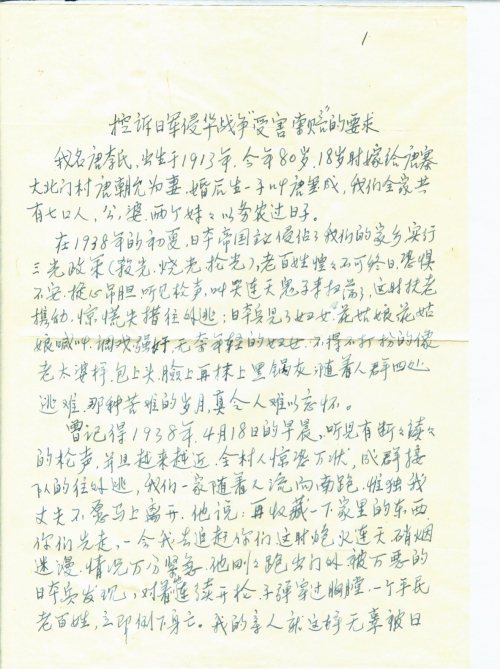 1
控诉日军侵华战争"受害索赔"的要求
我名唐李氏,出生于1913年,今年80岁,18岁时嫁给唐寨
大北门村唐朝允为妻,婚后生一子叫唐坠成,我们全家共
有七口人,公、婆、两个妹々以务农过日子。
在1938年的初夏,日本帝国主义侵佔了我们的家乡实行
三光政策(杀光、烧光、抢光),老百姓惶々不可终日,恐惧
不安、提心吊胆,听见枪声,叫哭连天鬼子来扫荡了,这时扶老
携幼,惊慌失措往外逃,日本兵见了妇女,花姑娘花姑
娘喊叫,调戏强奸,无奈年轻的妇女,不得不打扮的像
老太婆样,包上头脸上再抹上黑锅灰,随着人群四处
逃难,那种苦难的岁月,真令人难以忘怀。
曾记得1938年,4月18日的早晨,听见有断々续々
的枪声,并且越来越近,全村人惊恐万状,成群接
队的往外逃,我们一家随着人流向南跑,惟独我
丈夫不愿马上离开,他说:再收藏一下家里的东西
你们先走,一会我去追赶你们这时炮火连天硝烟
迷漫,情况万分紧急,他刚々跑出门外被万恶的
日本兵发现,对着连续开枪,子弹穿过胸膛,一个平民
老百姓,立即倒下身亡。我的亲人就这样无辜被日